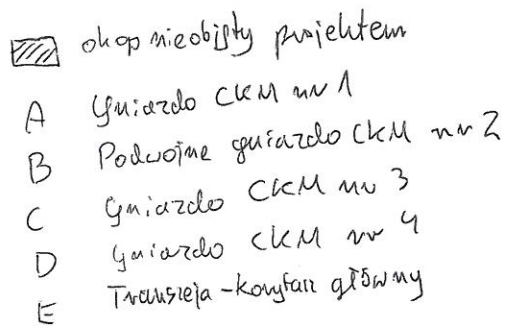 okop nieobjęty projektem
A Gniazdo CKM nr 1
B Podwójne gniazdo CKM nr 2
C Gniazdo CKM nr 3
D Gniazdo CKM nr 4
E Transzeja - korytarz główny